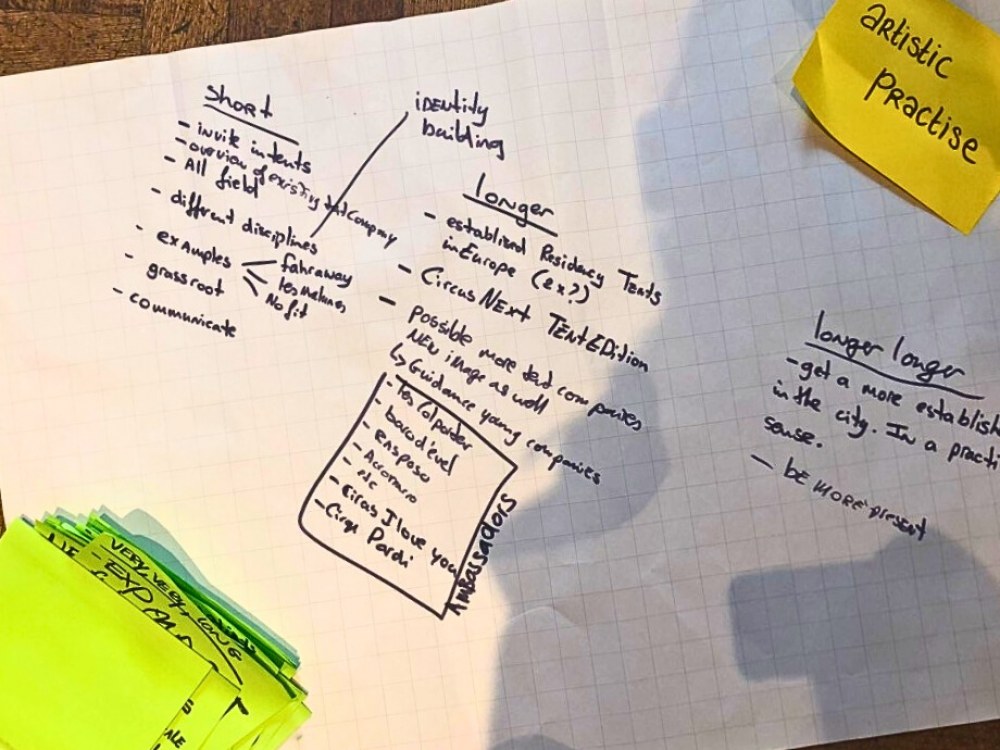 artistic
Practise
Short
- invite in tents
- overview of existing tent company
- All field
- different disciplines
- examples
fahraway
les malunes
Nofit
- grassroot
- communicate
iDEntity
building
longer
- establised Residency Tents
in Europe (ex?)
- Circus NExt TEntEDition
- possible more tent companies
NEW image as well
↳ Guidance young companies
- baro d'evel
- RASPOSO
- etc
- Circus I love you
- Cirqu Pardi
AmBassadors
longer longer
- get a more establish
in the city. In a practi
sense.
- BE MORE present
VERY, VERY LONG
- EXPAN